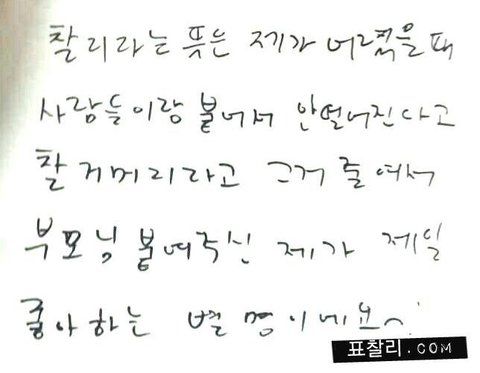 찰리라는 뜻은 제가 어렸을때
사람들이랑 붙어서 안떨어진다고
찰거머리라고 그거 줄여서
부모님 붙여주신 제가 제일
좋아하는 별명이에요^^
표찰리.COM